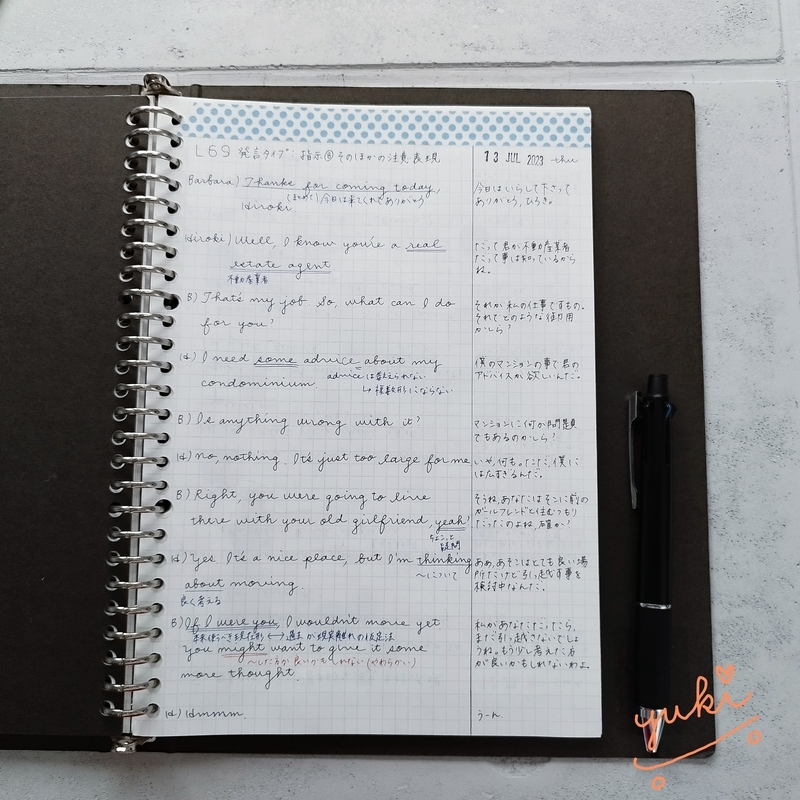 L69 発言タイプ: 指示⑥そのほかの注意表現
13 JUL 2023 thu
Barbara) Thanks for coming today,
(まとめて)今日は来てくれてありがとう
Hiroki.
今日はいらして下さって
ありがとう、ひろき。
Hiroki) Well, I know you're a real
estate agent
不動産業者
だって君が不動産業者
だって事は知っているから
ね。
B) That's my job. So, what can I do
for you?
それが私の仕事ですもの。
それでどのような御用
かしら?
H) I need some advice about my
condominium.
adviceは数えられない
↳ 複数形にならない
僕のマンションの事で君の
アドバイスが欲しいんだ。
B) Is anything wrong with it?
マンションに何か問題
でもあるのかしら?
H) No, nothing. It's just too large for me.
いや、何も。ただ、僕に
は広すぎるんだ。
B) Right, you were going to live
there with your old girlfriend, yeah?
ちょこっと
疑問
そうね、あなたはそこに前の
ガールフレンドと住むつもり
だったのよね、確か?
H) Yes. It's a nice place, but I'm thinking
about moving.
〜について
良く考える
ああ、あそこはとても良い場
所だけど引っ越す事を
検討中なんだ。
B) If I were you, I wouldn't move yet
本来使うべき現在形 ⟷ 過去が現実離れの仮定法
You might want to give it some
〜した方が良いかもしれない(やわらかい)
more thought.
私があなただったら、
まだ引っ越さないでしょ
うね。もう少し考えた方
が良いかもしれないわよ。
H) Hmmm.
うーん。
yuki